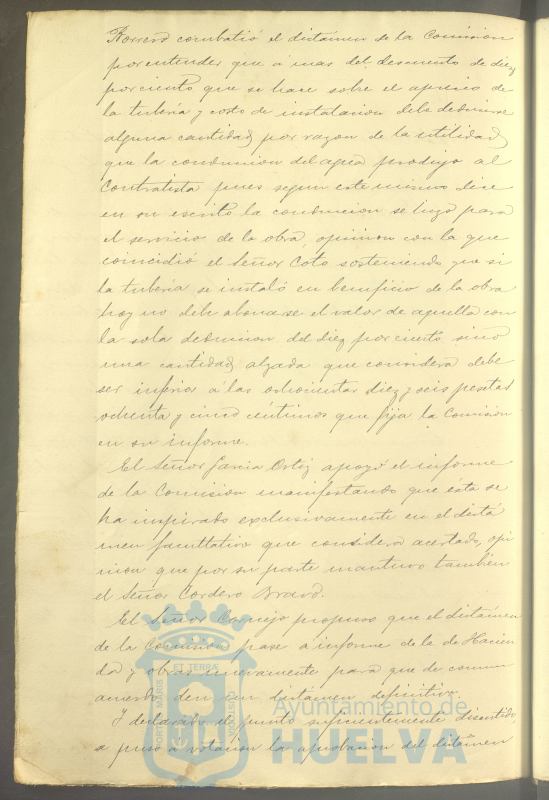 Romero combatió el dictámen de la Comision
por entender que á mas del descuento de diez
por ciento que se hace sobre el aprecio de
la tubería y costo de instalacion debe deducirse
alguna cantidad por razon de la utilidad
que la conduccion del agua produjo al
Contratista pues segun este mismo dice
en su escrito la conduccion se hizo para
el servicio de la obra, opinion con la que
coincidió el Señor Coto sosteniendo que si
la tubería se instaló en beneficio de la obra
hoy no debe abonarse el valor de aquella con
la sola deduccion del diez por ciento sino
una cantidad alzada que considera debe
ser inferior á las ochocientas diez y seis pesetas
ochenta y cinco céntimos que fija la Comision
en su informe.
El Señor Garcia Ortiz apoyó el informe
de la Comision manifestando que ésta se
ha inspirado exclusivamente en el dictá
men facultativo que considera acertado, opi
nion que por su parte mantuvo tambien
el Señor Cordero Bravo.
El Señor Cornejo propuso que el dictámen
de la Comision pase á informe de la de Hacien
da y obras nuevamente para que de comun
acuerdo den su dictámen definitivo.
Y declarado el punto suficientemente discutido
se puso á votacion la aprobacion del dictámen
ET TERRÆ
PORTUS MARIS
CUSTODIA
Ayuntamiento de
HUELVA